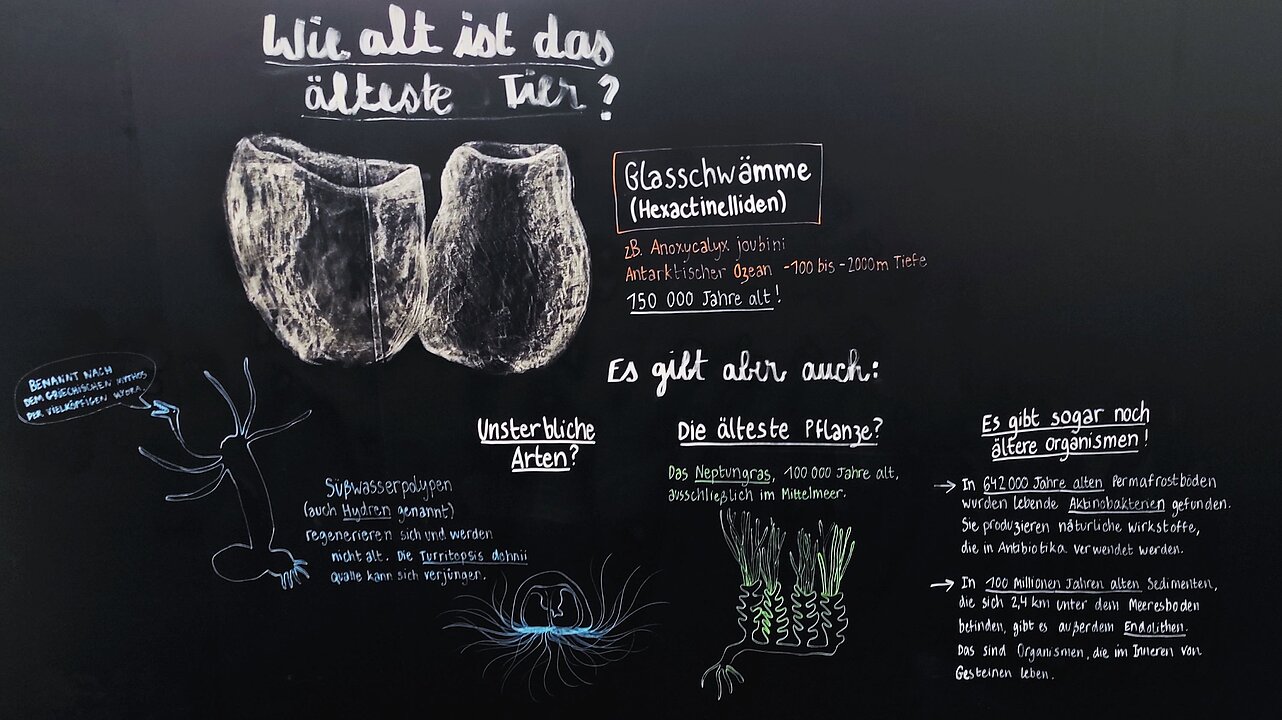 Wie alt ist das
älteste Tier?
Glasschwämme
(Hexactinelliden)
zB. Anoxycalyx joubini
Antarktischer Ozean -100 bis -2000m Tiefe
150 000 Jahre alt!
Es gibt aber auch:
BENANNT NACH
DEM GRIECHISCHEN MYTHOS
DER VIELKÖPFIGEN HYDRA.
Unsterbliche
Arten?
Süßwasserpolypen
(auch Hydren genannt)
regenerieren sich und werden
nicht alt. Die Turritopsis dohrnii
Qualle kann sich verjüngen.
Die älteste Pflanze?
Das Neptungras, 100 000 Jahre alt,
ausschließlich im Mittelmeer.
Es gibt sogar noch
ältere Organismen!
→ In 642 000 Jahre alten Permafrostböden
wurden lebende Aktinobakterien gefunden.
Sie produzieren natürliche Wirkstoffe,
die in Antibiotika verwendet werden.
→ In 100 Millionen Jahren alten Sedimenten,
die sich 2,4 km unter dem Meeresboden
befinden, gibt es außerdem Endolithen.
Das sind Organismen, die im Inneren von
Gesteinen leben.